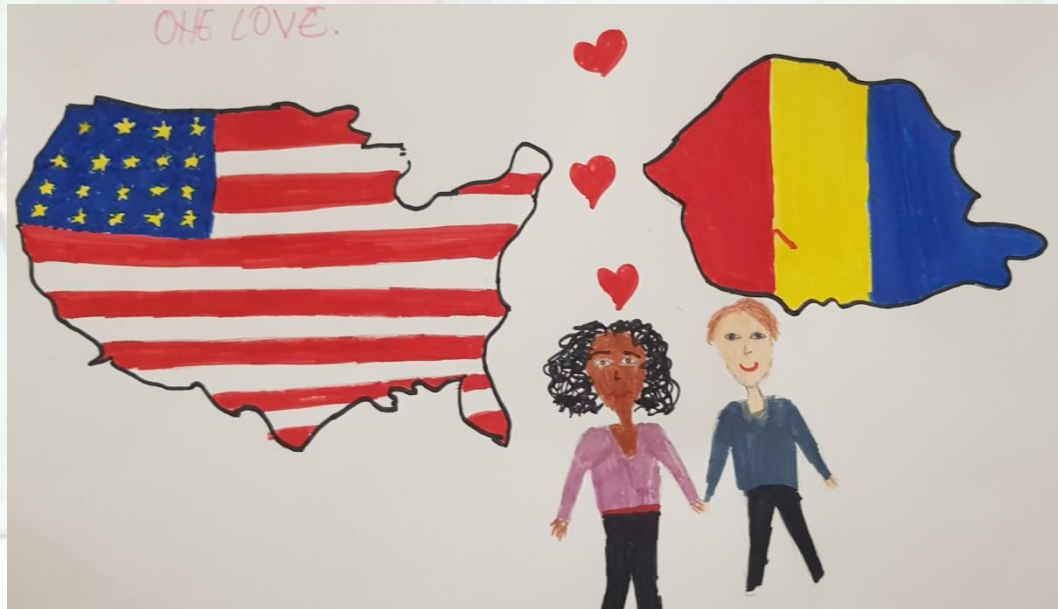 ONE LOVE.